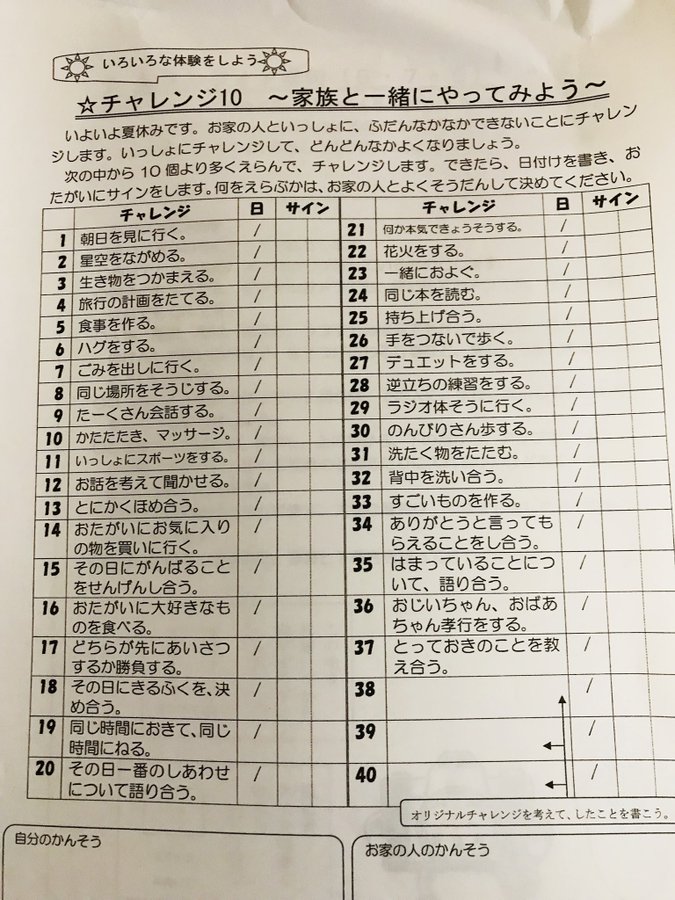 いろいろな体験をしよう
☆チャレンジ10 ～家族と一緒にやってみよう～
いよいよ夏休みです。お家の人といっしょに、ふだんなかなかできないことにチャレン
ジします。いっしょにチャレンジして、どんどんなかよくなりましょう。
次の中から10個より多くえらんで、チャレンジします。できたら、日付けを書き、お
たがいにサインをします。何をえらぶかは、お家の人とよくそうだんして決めてください。
チャレンジ 日 サイン
1 朝日を見に行く。 /
2 星空をながめる。 /
3 生き物をつかまえる。 /
4 旅行の計画をたてる。 /
5 食事を作る。 /
6 ハグをする。 /
7 ごみを出しに行く。 /
8 同じ場所をそうじする。 /
9 たーくさん会話する。 /
10 かたたたき、マッサージ。 /
11 いっしょにスポーツをする。 /
12 お話を考えて聞かせる。 /
13 とにかくほめ合う。 /
14 おたがいにお気に入り /
の物を買いに行く。
15 その日にがんばること /
をせんげんし合う。
16 おたがいに大好きなも /
のを食べる。
17 どちらが先にあいさつ /
するか勝負する。
18 その日にきるふくを、決 /
め合う。
19 同じ時間におきて、同じ /
時間にねる。
20 その日一番のしあわせ /
について語り合う。
チャレンジ 日 サイン
21 何か本気できょうそうする。 /
22 花火をする。 /
23 一緒におよぐ。 /
24 同じ本を読む。 /
25 持ち上げ合う。 /
26 手をつないで歩く。 /
27 デュエットをする。 /
28 逆立ちの練習をする。 /
29 ラジオ体そうに行く。 /
30 のんびりさん歩する。 /
31 洗たく物をたたむ。 /
32 背中を洗い合う。 /
33 すごいものを作る。 /
34 ありがとうと言っても /
らえることをし合う。
35 はまっていることにつ /
いて、語り合う。
36 おじいちゃん、おばあ /
ちゃん孝行をする。
37 とっておきのことを教 /
え合う。
38 /
39 /
40 /
オリジナルチャレンジを考えて、したことを書こう。
自分のかんそう
お家の人のかんそう